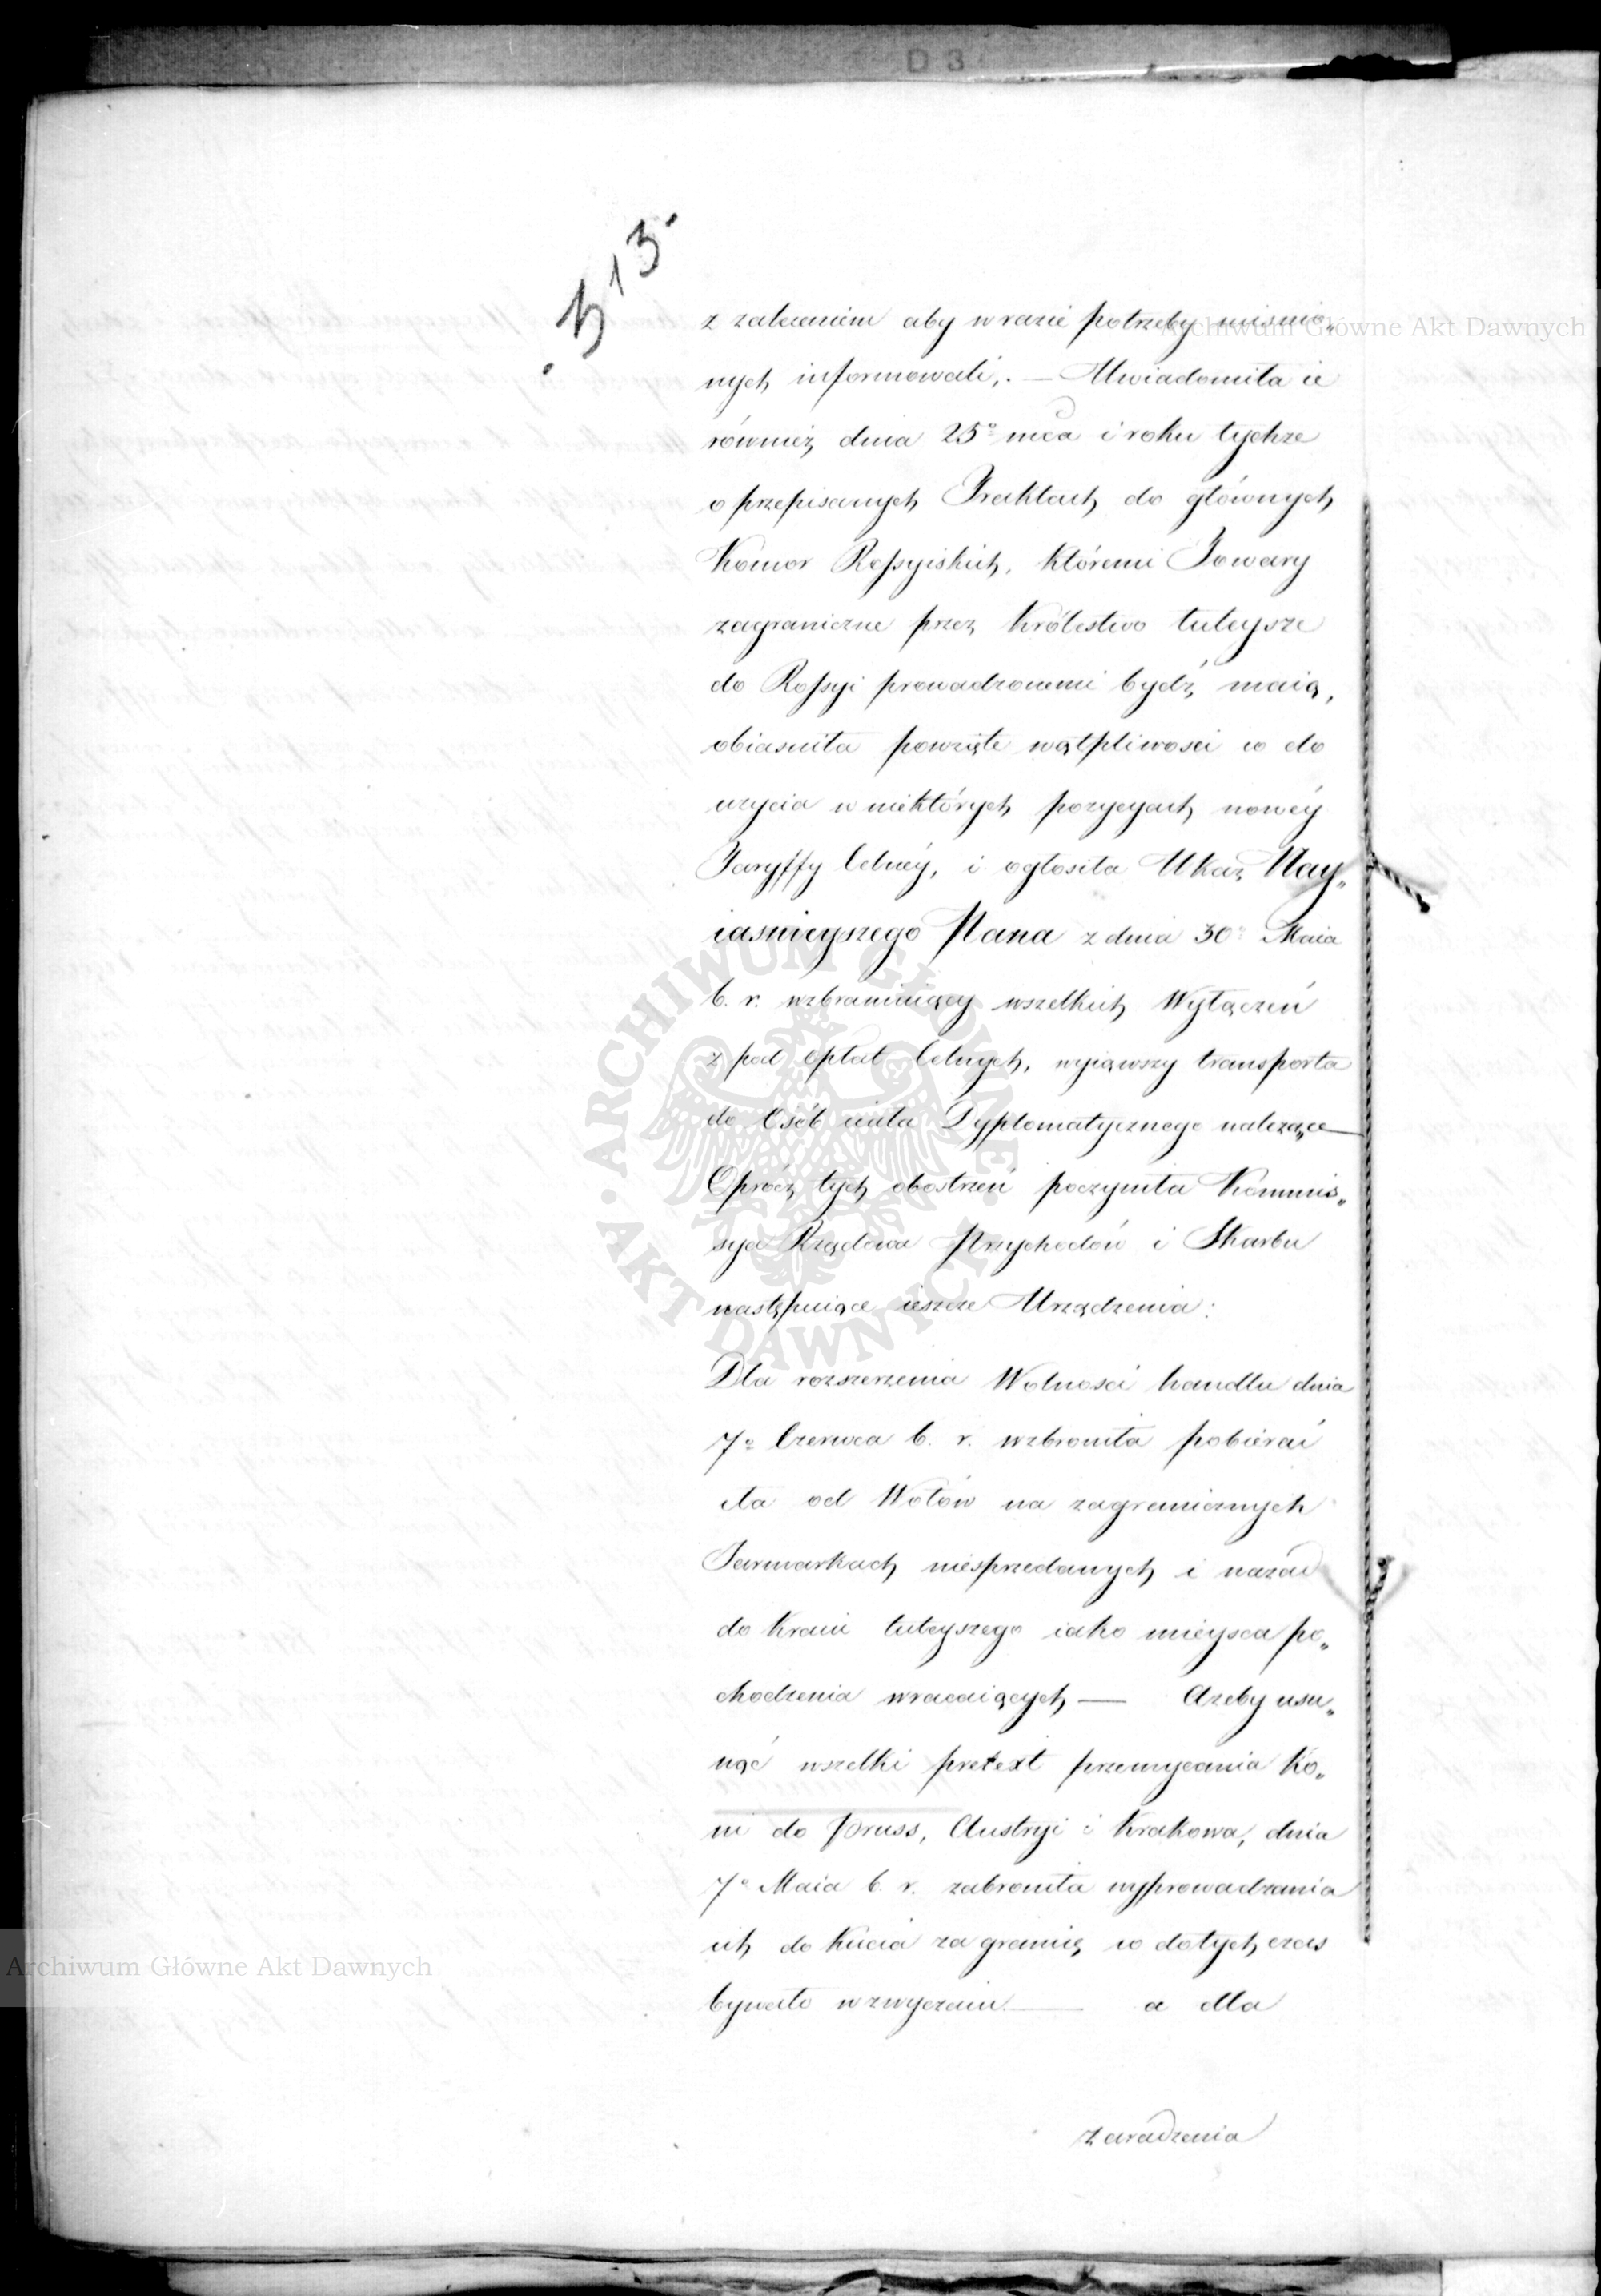 D 3
513.
z zaleceniem aby w razie potrzeby mieysco„
nych informowali,. — Uwiadomiła ie
również dnia 25º mca i roku tychże
o przepisanych Traktach do głównych
Komor Rossyiskich, któremi Towary
zagraniczne przez Królestwo tuteysze
do Rossyi prowadzonemi bydź maią,
obiasniła powzięte wątpliwosci co do
użycia w niektórych pozycyach nowéy
Taryffy Celnéy, i ogłosiła Ukaz Nay„
iasnieyszego Pana z dnia 30º Maia
b. r. wzbraniaiący wszelkich Wyłączeń
z pod opłat Celnych, wyiąwszy transporta
do Osób ciała Dyplomatycznego należące —
Oprócz tych obostrzeń poczyniła Kommis„
sya Rządowa Przychodów i Skarbu
następuiące ieszcze Urządzenia:
Dla rozszerzenia Wolnosci handlu dnia
7º Czerwca b. r. wzbroniła pobierać
cła od Wołów na zagranicznych
Jarmarkach niesprzedanych i nazad
do Kraiu tuteyszego iako mieysca po„
chodzenia wracaiących — Ażeby usu„
nąć wszelki pretext przemycania Ko„
ni do Pruss, Austryi i Krakowa, dnia
7º Maia b. r. zabroniła wyprowadzania
ich do Kucia za granicę co dotychczas
bywało w zwyczaiu — a dla
zaradzenia
Archiwum Główne Akt Dawnych
Archiwum Główne Akt Dawnych
ARCHIWUM GŁÓWNE AKT DAWNYCH